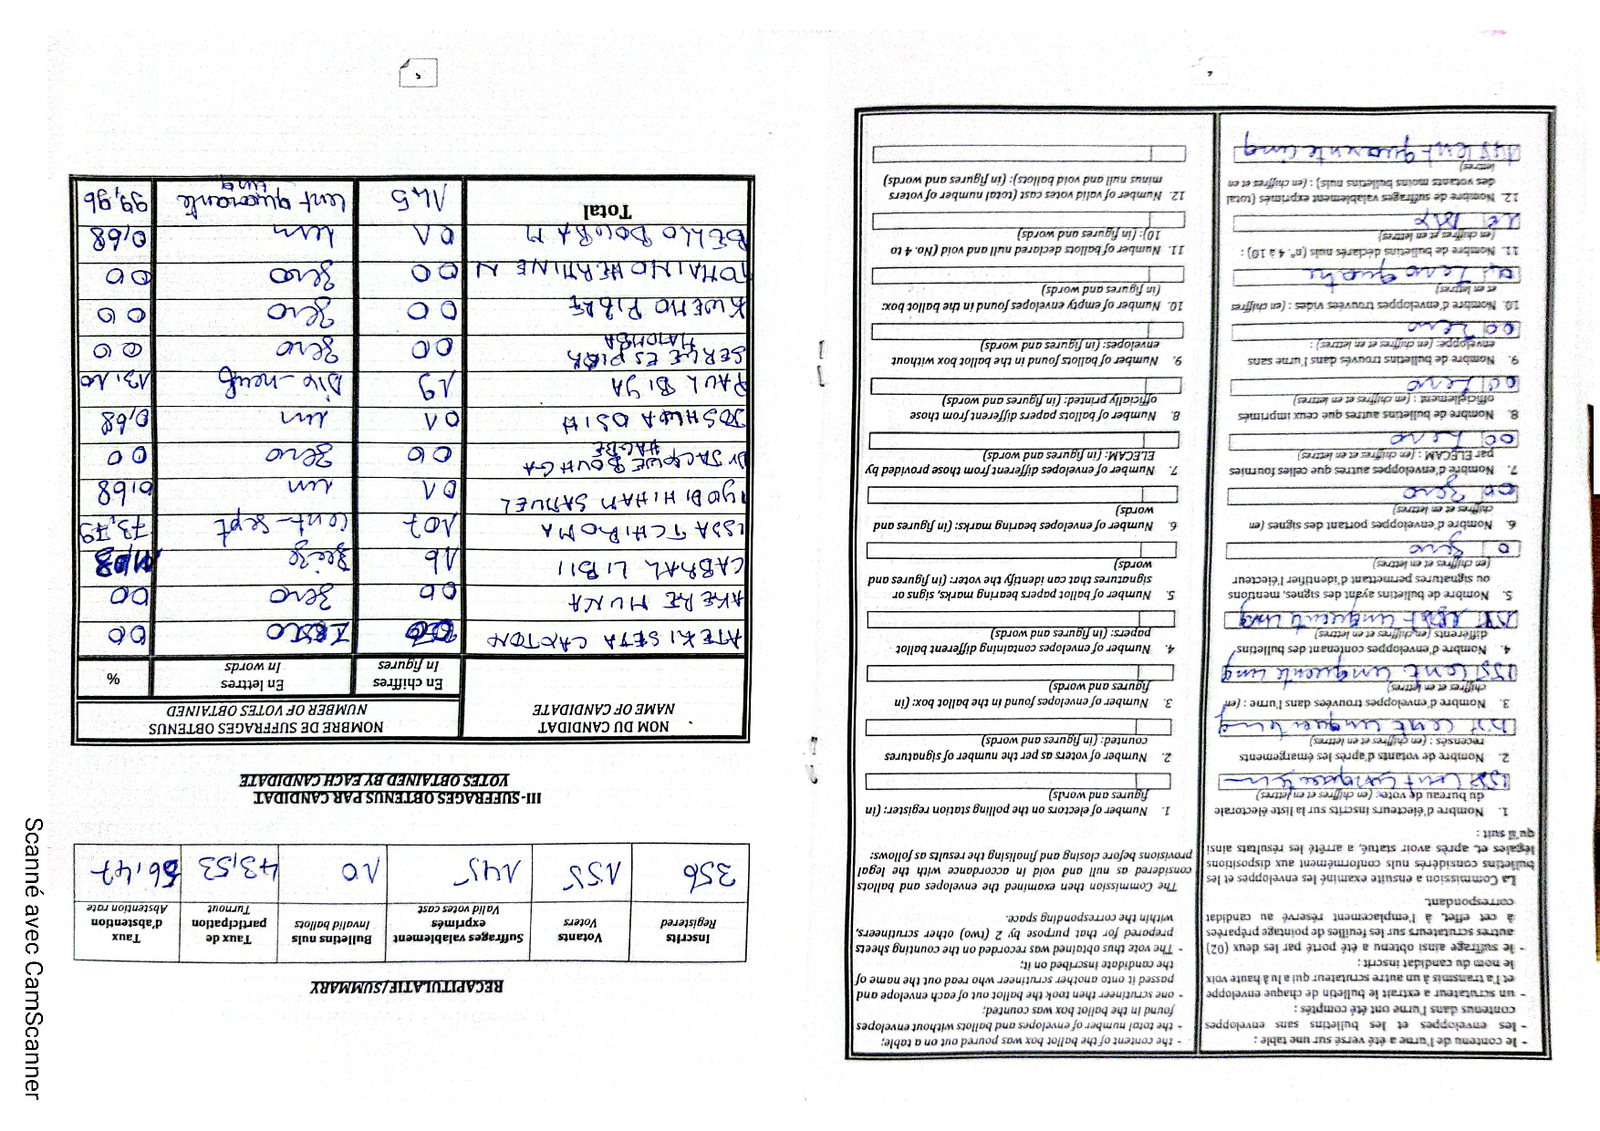 - le contenu de l'urne a été versé sur une table :
- les enveloppes et les bulletins sans enveloppes
contenus dans l'urne ont été comptés :
- un scrutateur a extrait le bulletin de chaque enveloppe
et l'a transmis à un autre scrutateur qui a lu à haute voix
le nom du candidat inscrit :
- le suffrage ainsi obtenu a été porté par les deux (02)
autres scrutateurs sur les feuilles de pointage préparées
à cet effet, à l'emplacement réservé au candidat
correspondant.
La Commission a ensuite examiné les enveloppes et les
bulletins considérés nuls conformément aux dispositions
légales et, après avoir statué, a arrêté les résultats ainsi
qu'il suit :
1. Nombre d'électeurs inscrits sur la liste électorale
du bureau de vote: (en chiffres et en lettres)
155 cent cinquante cin
2. Nombre de votants d'après les émargements
recensés : (en chiffres et en lettres)
155 cent cinquante cinq
3. Nombre d'enveloppes trouvées dans l'urne : (en
chiffres et en lettres)
155 cent cinquante cinq
4. Nombre d'enveloppes contenant des bulletins
différents (en chiffres et en lettres)
155 cent cinquante cinq
5. Nombre de bulletins ayant des signes, mentions
ou signatures permettant d'identifier l'électeur
(en chiffres et en lettres)
0 zero
6. Nombre d'enveloppes portant des signes (en
chiffres et en lettres)
00 zero
7. Nombre d'enveloppes autres que celles fournies
par ELECAM: (en chiffres et en lettres)
00 zero
8. Nombre de bulletins autres que ceux imprimés
officiellement : (en chiffres et en lettres)
00 zero
9. Nombre de bulletins trouvés dans l'urne sans
enveloppe: (en chiffres et en lettres) :
00 zero
10. Nombre d'enveloppes trouvées vides : (en chiffres
et en lettres)
04 zero quatre
11. Nombre de bulletins déclarés nuls (n° 4 à 10) :
(en chiffres et en lettres)
10 DIX
12. Nombre de suffrages valablement exprimés (total
des votants moins bulletins nuls) : (en chiffres et en
lettres)
145 cent quarante cinq
- the content of the ballot box was poured out on a table;
- the total number of envelopes and ballots without envelopes
found in the ballot box was counted;
- one scrutineer then took the ballot out of each envelope and
passed it onto another scrutineer who read out the name of
the candidate inscribed on it;
- The vote thus obtained was recorded on the counting sheets
prepared for that purpose by 2 (two) other scrutineers,
within the corresponding space.
The Commission then examined the envelopes and ballots
considered as null and void in accordance with the legal
provisions before closing and finalising the results as follows:
1. Number of electors on the polling station register: (in
figures and words)
2. Number of voters as per the number of signatures
counted: (in figures and words)
3. Number of envelopes found in the ballot box: (in
figures and words)
4. Number of envelopes containing different ballot
papers: (in figures and words)
5. Number of ballot papers bearing marks, signs or
signatures that can identify the voter: (in figures and
words)
6. Number of envelopes bearing marks: (in figures and
words)
7. Number of envelopes different from those provided by
ELECAM: (in figures and words)
8. Number of ballots papers different from those
officially printed: (in figures and words)
9. Number of ballots found in the ballot box without
envelopes: (in figures and words)
10. Number of empty envelopes found in the ballot box:
(in figures and words)
11. Number of ballots declared null and void (No. 4 to
10): (in figures and words)
12. Number of valid votes cast (total number of voters
minus null and void ballots): (in figures and words)
RECAPITULATIF/SUMMARY
Inscrits Registered | Votants Voters | Suffrages valablement exprimés Valid votes cast | Bulletins nuls Invalid ballots | Taux de participation Turnout | Taux d'abstention Abstention rate
356 | 155 | 145 | 10 | 43,53 | 56,47
III- SUFFRAGES OBTENUS PAR CANDIDAT
VOTES OBTAINED BY EACH CANDIDATE
NOM DU CANDIDAT
NAME OF CANDIDATE
NOMBRE DE SUFFRAGES OBTENUS
NUMBER OF VOTES OBTAINED
En chiffres In figures | En lettres In words | %
ATEKI SETA CAXTON | 00 | Zero | 00
AKERE MUNA | 00 | zero | 00
CABRAL LIBII | 16 | seize
ISSA TCHIROMA | 107 | cent-sept | 73,79
IYODI HIHAM SAMUEL | 01 | un | 0,68
Dr JACQUE BOUHGA HAGBE | 00 | zero | 00
JOSHUA OSIH | 01 | un | 0,68
PAUL BIYA | 19 | Dix-neuf | 13,10
SERGE ESPOIR MATOMBA | 00 | zero | 00
KWEMO PIERRE | 00 | zero | 00
TOMAINO HERMINE N | 00 | zero | 00
BELLO BOUBA M | 01 | un | 0,68
Total | 145 | cent quarante cinq | 99,96
5
Scanné avec CamScanner